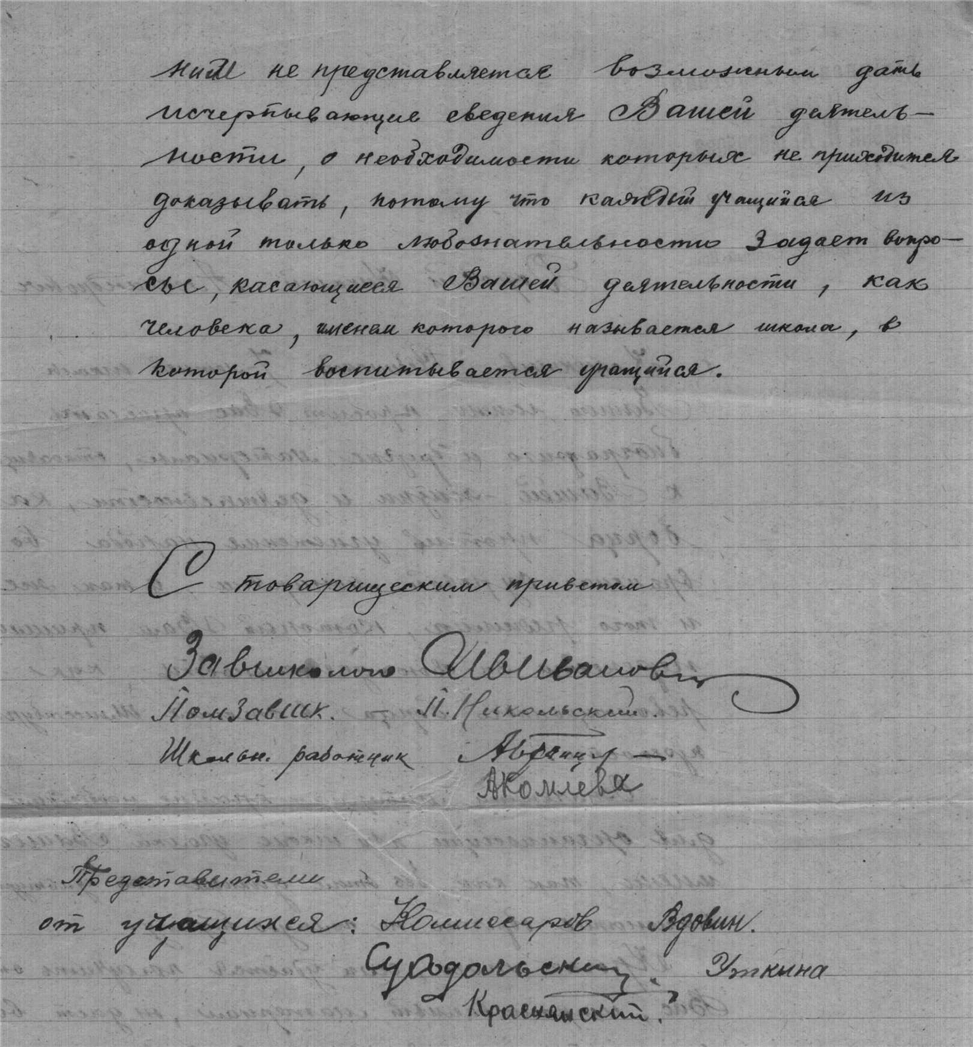 ним не представляется возможным дать
исчерпывающие сведения Вашей деятель–
ности, о необходимости которых не приходится
доказывать, потому что каждый учащийся из
одной только любознательности задает вопро–
сы, касающиеся Вашей деятельности, как
человека, именем которого называется школа, в
которой воспитывается учащийся.
С товарищеским приветом
Завшколою Ив Иванов
Помзавшк. П. Никольский.
Школьн. работник
АКомлева
Представители
от учащихся: Комиссаров Вдовин.
Суходольский. Уткина
Краснянский.